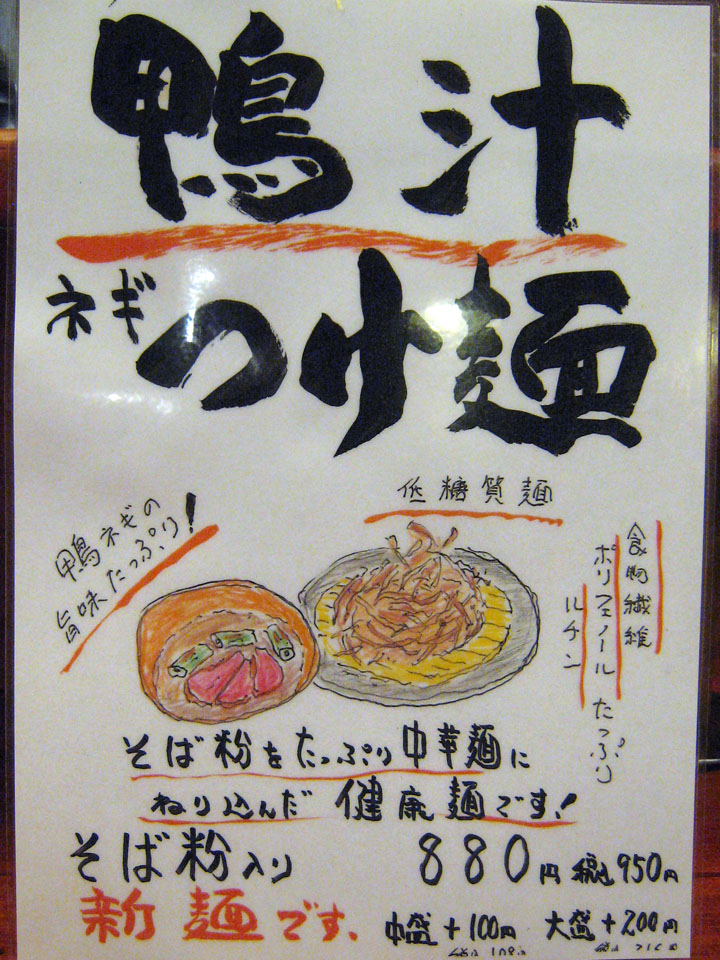 鴨汁
ネギ
つけ麺
鴨ネギの
旨味たっぷり!
低糖質麺
食物繊維
ポリフェノール
ルチン
たっぷり
そば粉をたっぷり中華麺に
ねり込んだ 健康麺です!
そば粉入り 880円 税込950円
新麺です、 中盛+100円 大盛+200円
税込108円